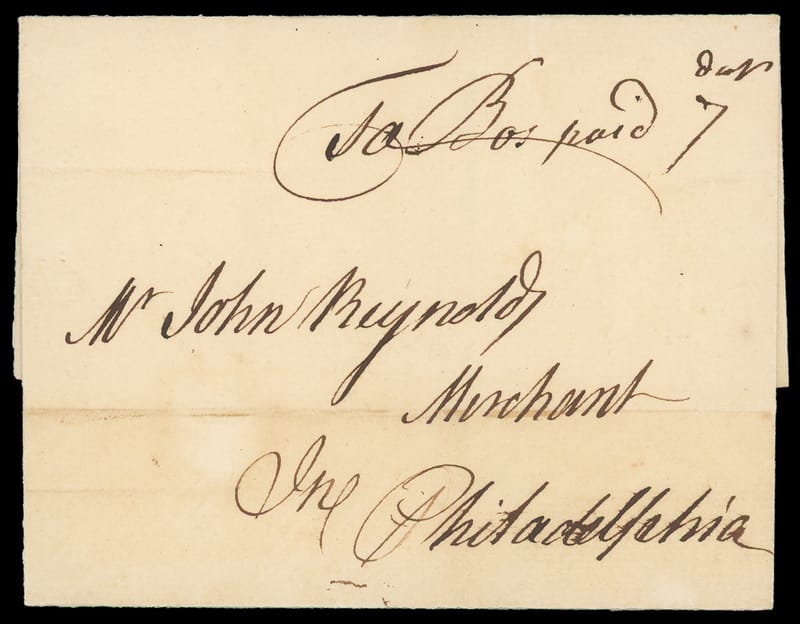 Sa Bos paid 7
Mr John Reynolds
Merchant
In Philadelphia